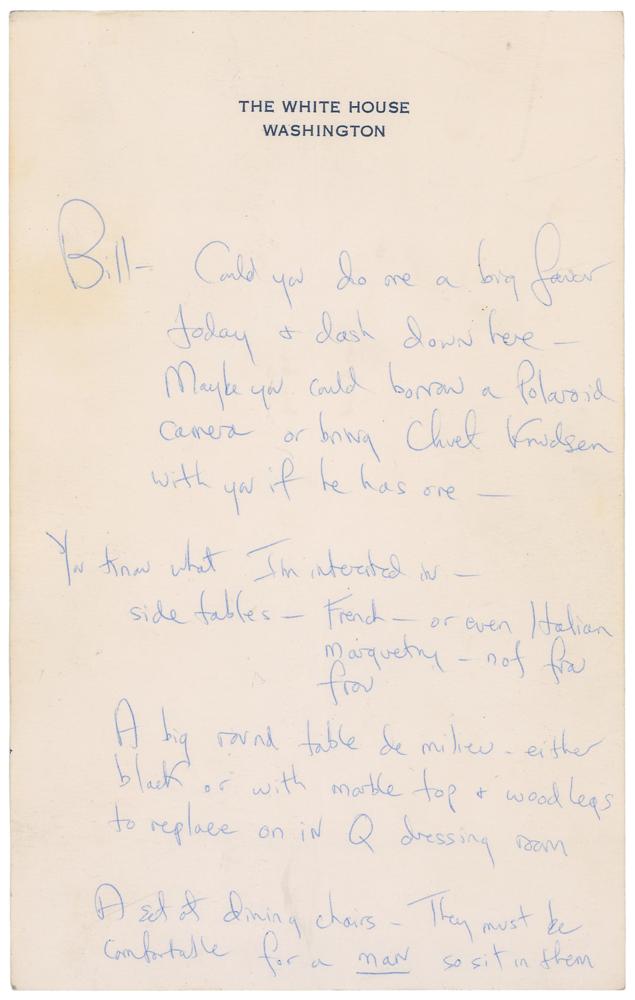 THE WHITE HOUSE
WASHINGTON
Bill— Could you do me a big favor
today & dash down here —
Maybe you could borrow a Polaroid
camera or bring Chuet Knudsen
with you if he has one —
You know what I'm interested in —
side tables — French — or even Italian
marquetry — not frou
frou
A big round table de milieu - either
black or with marble top & wood legs
to replace on in Q dressing room
A set of dining chairs — They must be
comfortable for a man so sit in them